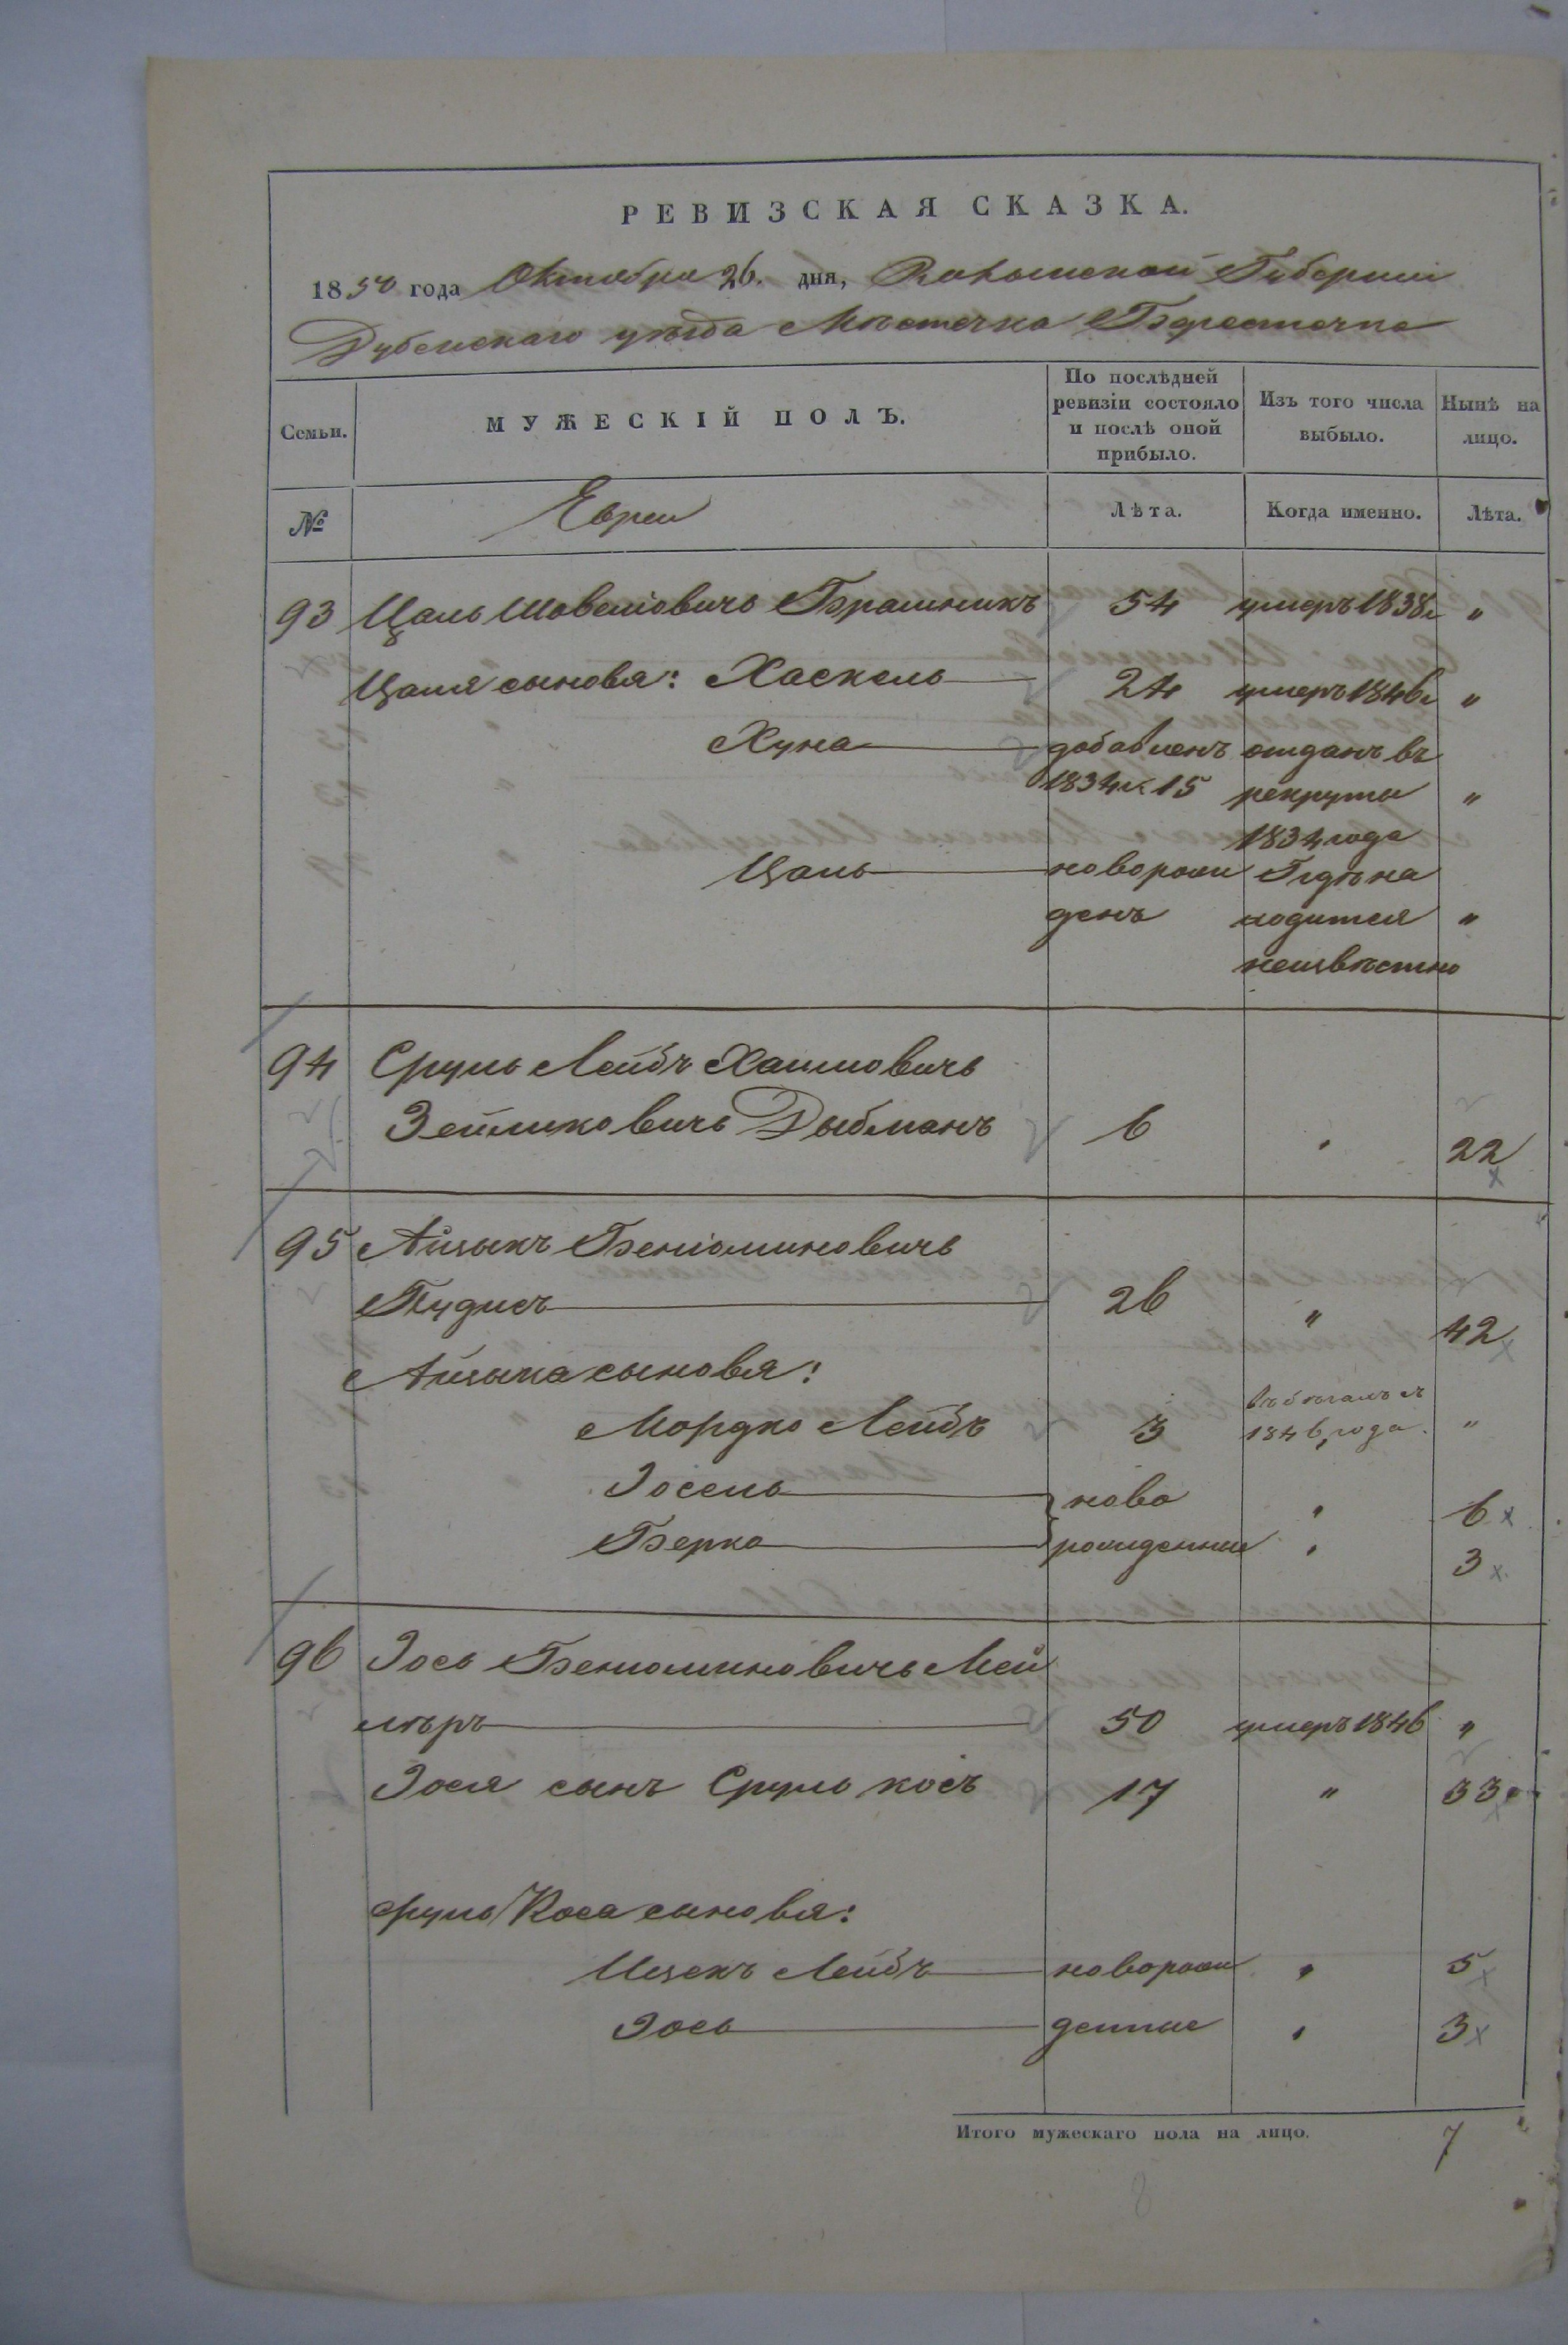 РЕВИЗСКАЯ СКАЗКА.
1850 года Октября 26. дня, Волынской Губерніи
Дубенскаго уѣзда Мѣстечка Берестечка
Семьи.
МУЖЕСКІЙ ПОЛЪ.
По послѣдней ревизіи состояло и послѣ оной прибыло.
Изъ того числа выбыло.
Нынѣ на лицо.
№
Евреи
Лѣта.
Когда именно.
Лѣта.
93 Цаль Шовеліовичь Брашникъ 54 умеръ 1838г "
Цаля сыновья: Хаскель 24 умеръ 1846г "
Хуна добавленъ отданъ въ
1834г. 15 рекруты "
1834 года
Цаль новорож Гдѣ на
денъ ходится "
неизвѣстно
94 Сруль Лейбъ Хаимовичь
Зейликовичь Дыбманъ 6 " 22
95 Айзыкъ Беніоминовичь
Пудисъ 26 " 42
Айзыка сыновья:
Мордко Лейбъ 3 въ бѣгахъ съ 1846 года. "
Іосель ново " 6
Берко рожденные " 3
96 Іось Бениоминовичь Мей
лѣръ 50 умеръ 1846 "
Іося сынъ Сруль Косъ 17 " 33
Сруль Коса сыновья:
Ицекъ Лейбъ новорож " 5
Іось денные " 3
Итого мужескаго пола на лицо. 7
8